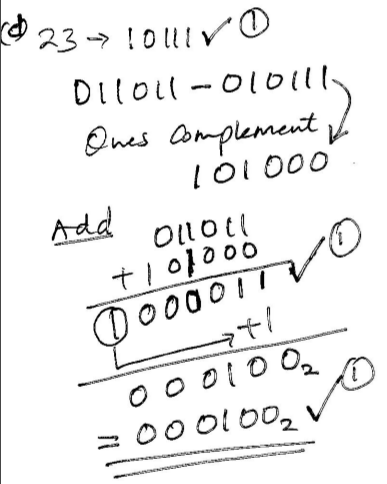 (d) 23 → 10111 ✓ ①
011011 - 010111
Ones Complement
101000
Add
011011
+ 101000
① 000011 ✓ ①
+1
000100₂
= 000100₂ ✓ ①